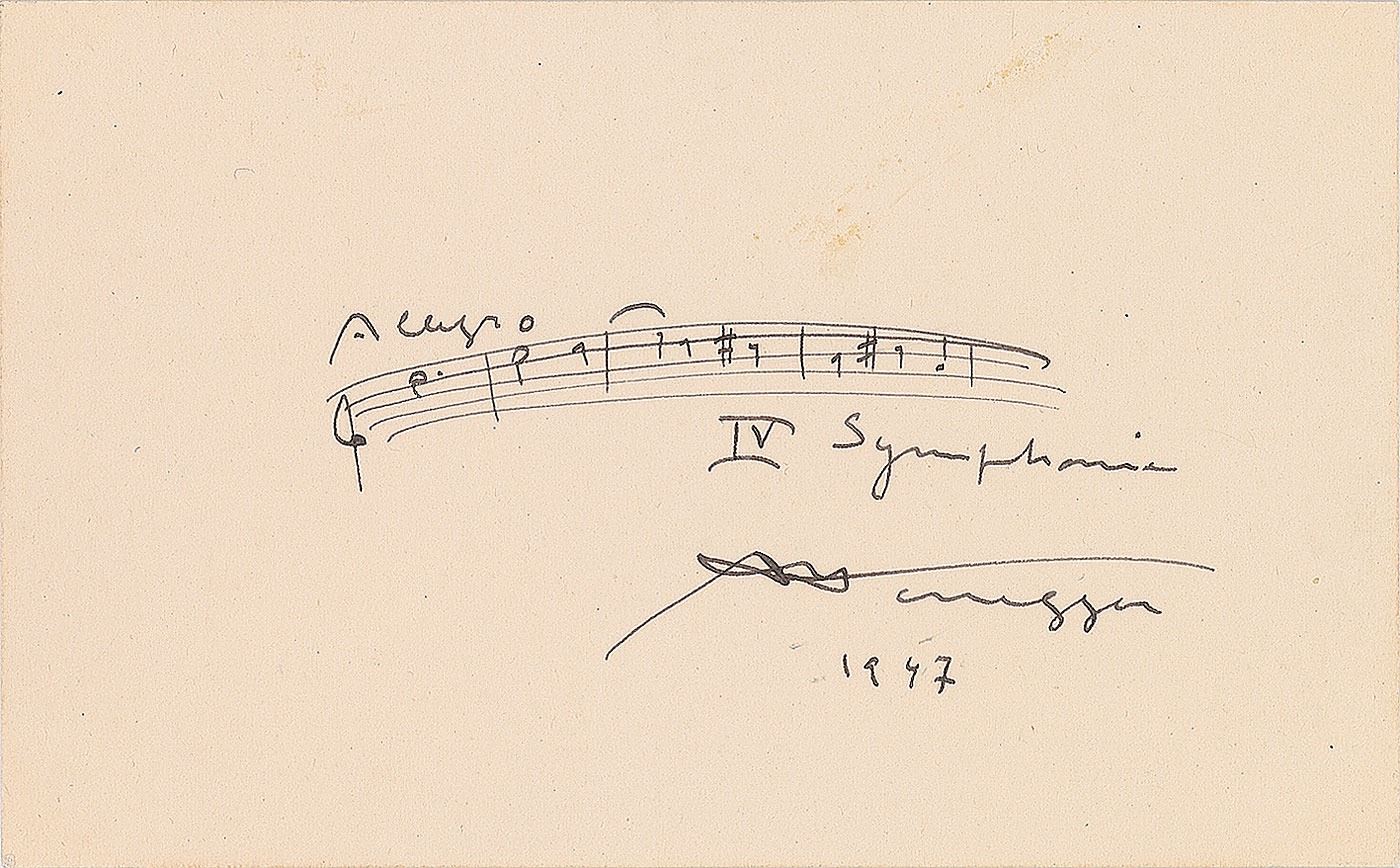 Allegro
IV Symphonie
AHonegger
1947